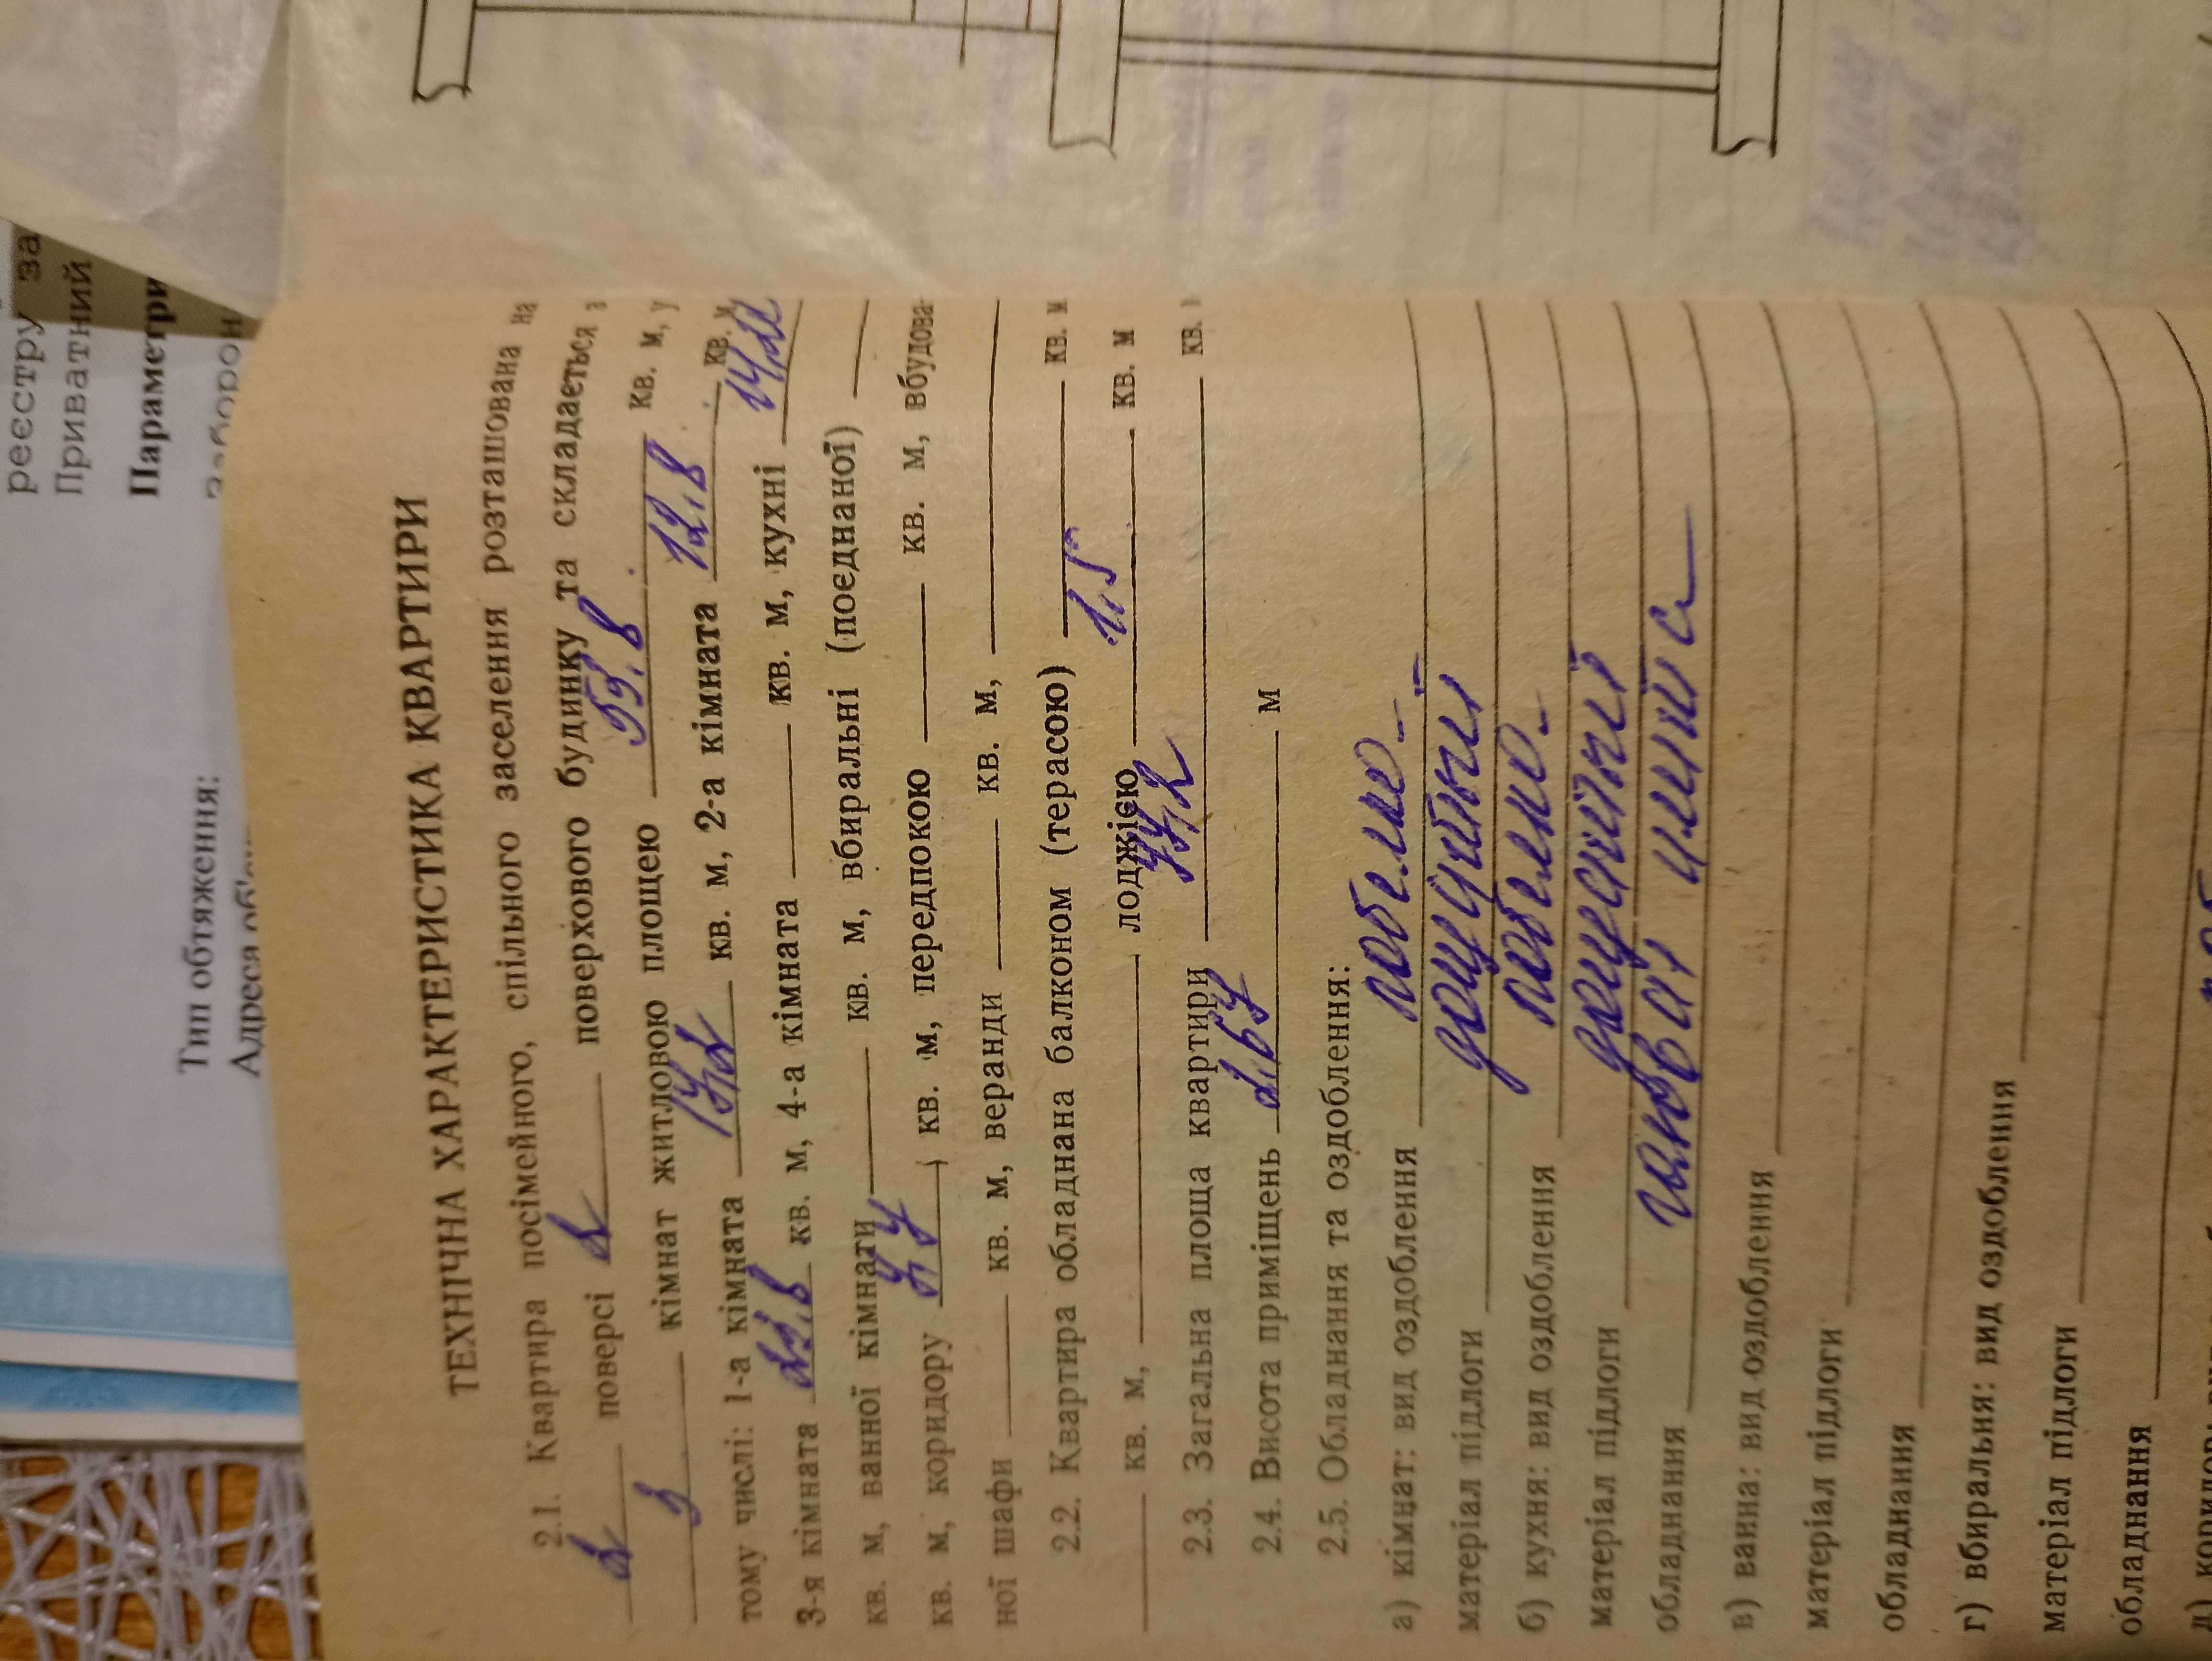 реєстру за
Приватний
Параметри
Тип обтяження:
Адреса об'
ТЕХНІЧНА ХАРАКТЕРИСТИКА КВАРТИРИ
2.1. Квартира посімейного, спільного заселення розташована на
2 поверсі 2 поверхового будинку та складається з
3 кімнат житловою площею 53.8 кв. м, у
тому числі: 1-а кімната кв. м, 2-а кімната 12.8 кв. м,
3-я кімната 23.8 кв. м, 4-а кімната кв. м, кухні
кв. м, ванної кімнати кв. м, вбиральні (поєднаної)
кв. м, коридору кв. м, передпокою кв. м, вбудова-
ної шафи кв. м, веранди кв. м,
2.2. Квартира обладнана балконом (терасою) кв. м
кв. м, лоджією 1.5 кв. м
2.3. Загальна площа квартири 77.2 кв.
2.4. Висота приміщень 2.67 м
2.5. Обладнання та оздоблення:
а) кімнат: вид оздоблення побелено
матеріал підлоги дощатый
б) кухня: вид оздоблення побелено
матеріал підлоги дощатый
обладнання
в) ванна: вид оздоблення
матеріал підлоги
обладнання
г) вбиральня: вид оздоблення
матеріал підлоги
обладнання